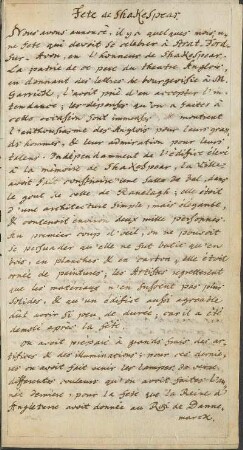 Fete de Shakespear
Nous avons annoncé, il y a quelques mois, u-
ne fete qui devoit se celebrer à Strat. Ford.
Sur. Avon, en l'honneur de Shakespear.
La patrie de ce pere du theatre Anglois,
en donnant des lettres de bourgeoisie à M.
Garrick, l'avoit prié d'en accepter l'in-
tendance; les depenses qu'on a faites à
cette occasion sont immenses & montrent
l'enthousiasme des Anglois pour leurs gran-
ds hommes, & leur admiration pour leurs
talens. Independamment de l'edifice elevé
à la memoire de Shakespear, la ville
avoit fait construire une Salle de bal, dans
le gout de celle de Ranelagh; elle étoit
d'une architecture simple, mais elegante,
& contenoit environ deux mille personnes.
au premier coup d'oeil, on ne pouvoit
se persuader qu'elle ne fut batie qu'en
bois, en planches & en carton; elle étoit
ornée de peintures; les Artistes regrettoient
que les materiaux n'en fussent pas plus
solides, & qu'un edifice aussi agreable
dut avoir si peu de durée; car il a été
demoli après la fete.
on avoit preparé à grands frais des ar-
tifices & des illuminations; pour ces dernie-
res on avoit fait venir les lampes de verre
differentes couleurs qu'on avoit faites l'an-
née derniere; pour la fete que la Reine d'
Angleterre avoit donnée au Roi de Danne-
marck.